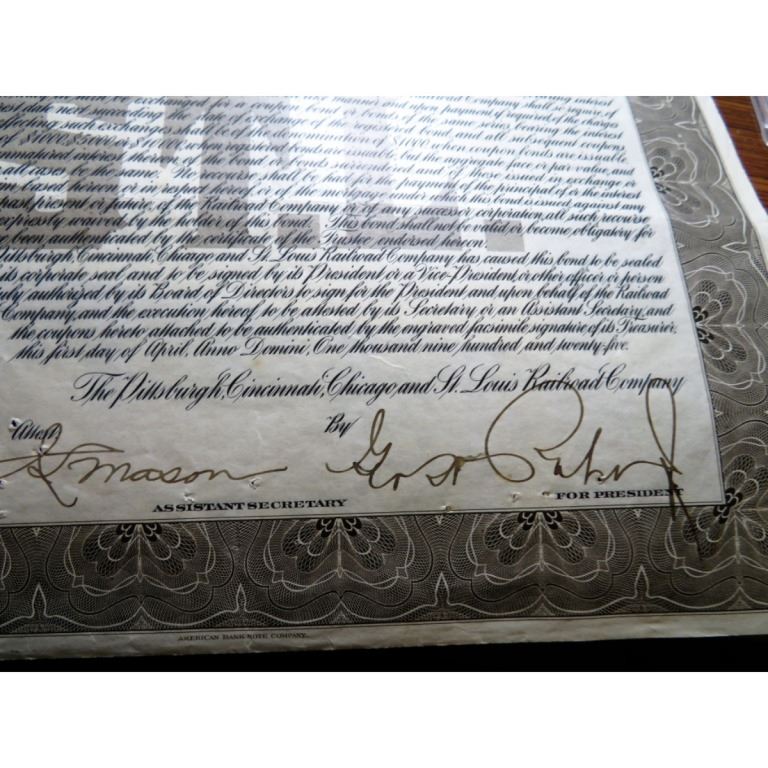 may in turn be exchanged for a coupon bond or bonds of the same series, bearing interest
effecting such exchanges shall be of the denomination of $1000 and all subsequent coupons
of $1000, $5000 or $10,000, when registered bonds are issuable, $1000 when coupon bonds are issuable
unmatured interest thereon, of the bond or bonds surrendered and of those issued in exchange or
all cases be the same. No recourse shall be had for the payment of the principal of or the interest
on based hereon or in respect hereof or of the mortgage under which this bond is issued, against any
past, present or future, of the Railroad Company or of any successor corporation, all such recourse
expressly waived by the holder of this bond. This bond shall not be valid or become obligatory for
been authenticated by the certificate of the Trustee endorsed hereon.
Pittsburgh, Cincinnati, Chicago and St. Louis Railroad Company has caused this bond to be sealed
its corporate seal and to be signed by its President or a Vice-President, or other officer or person
duly authorised by its Board of Directors to sign for the President, and upon behalf of the Railroad
Company, and the execution hereof to be attested by its Secretary or an Assistant Secretary, and
the coupons hereto attached to be authenticated by the engraved facsimile signature of its Treasurer,
this first day of April, Anno Domini, One thousand nine hundred and twenty-five.
The Pittsburgh, Cincinnati, Chicago and St. Louis Railroad Company
Attest By
Mason
ASSISTANT SECRETARY FOR PRESIDENT
AMERICAN BANK NOTE COMPANY.